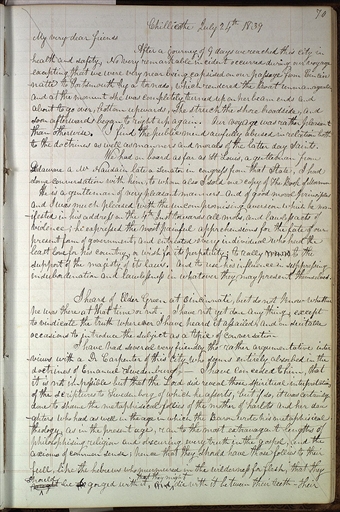 70
Chillicothe July 21th 1839
My very dear friends
After a journey of 9 days we reached this city in
health and safety. No very remarkable incident occured during our voyage
excepting that we were very near being capsised on our passage from Cincin
natti to Portsmouth by a tornado, which rendered the boat unmanageable
and at the moment she was completely turned upon her beam ends and
about to go over, bottom upwards she struck the shore headside, and
soon afterwards began to right up again. Our voyage was rather pleasant
than otherwise. I find the public mind awfully abused in relation both
to the doctrins as well as manners and morals of the latter day Saints.
We had on board as far as St Louis, a gentleman from
Delaware a Mr Nandain late a Senator in congress from that State, I had
long conversation with him, to whom also I sold a copy of the book of Mormon
He is a gentleman of very pleasant manners and of good moral principles
and I was much pleased with the uncompromising aversion which he man
ifested in his address on the 4th Inst towards all mobs, and lawless acts of
violence; he expressed the most painful apprehensions for the fate of our
present form of government, and entreated every individual who had the
least love for his country, or wish for its perpetuity to rally to the
support of the majesty of its laws: And to use his influence in suppressing
insubordination and lawlessness in whatever they may present themselves.
I heard of Elder Green at Cincinnati, but do not know whether
he was there at that time or not. I have not yet done any thing, except
to vindicate the truth wherever I have heard it assailed and on suitable
occasions to introduce the subject as a topic of conversation.
I have had several very friendly tho' rather argumentative inter
views with a Dr Carpenter of this city who seems entirely absorbed in the
doctrines of Emanuel Swedenburg. I have conceded to him, that
it is not impossible but that the Lord did reveal those spiritual interpretations
of the scriptures to Swedenburg, of which he asserts, but if so, it was certainly
done to shame the metaphysical follies of the mother of harlots and her dau
ghters who had as well in the age in which the Baron wrote his metaphysical
theology, as in the present age, ran to the most extravagant lengths of
philosophising religion and obscuring every truth in the gospel, and the
axioms of common sense; hence that they should have those follies to their
full, like the hebrews who murmured in the wilderness for flesh, that they
should be gorged with it, that they might die with it between their teeth—Their